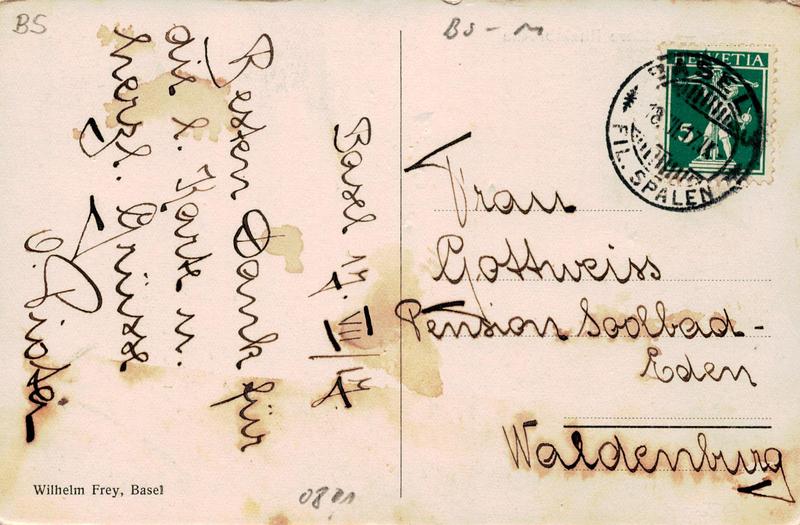 BS
BS-M
HELVETIA
BASEL 3
18.
FIL. SPALEN
5
Basel 17. VIII/17.
Besten Dank für
die l. Karte u.
herzl. Grüsse
Frau
Gottweiss
Pension Soolbad-
Eden
Waldenburg
Wilhelm Frey, Basel